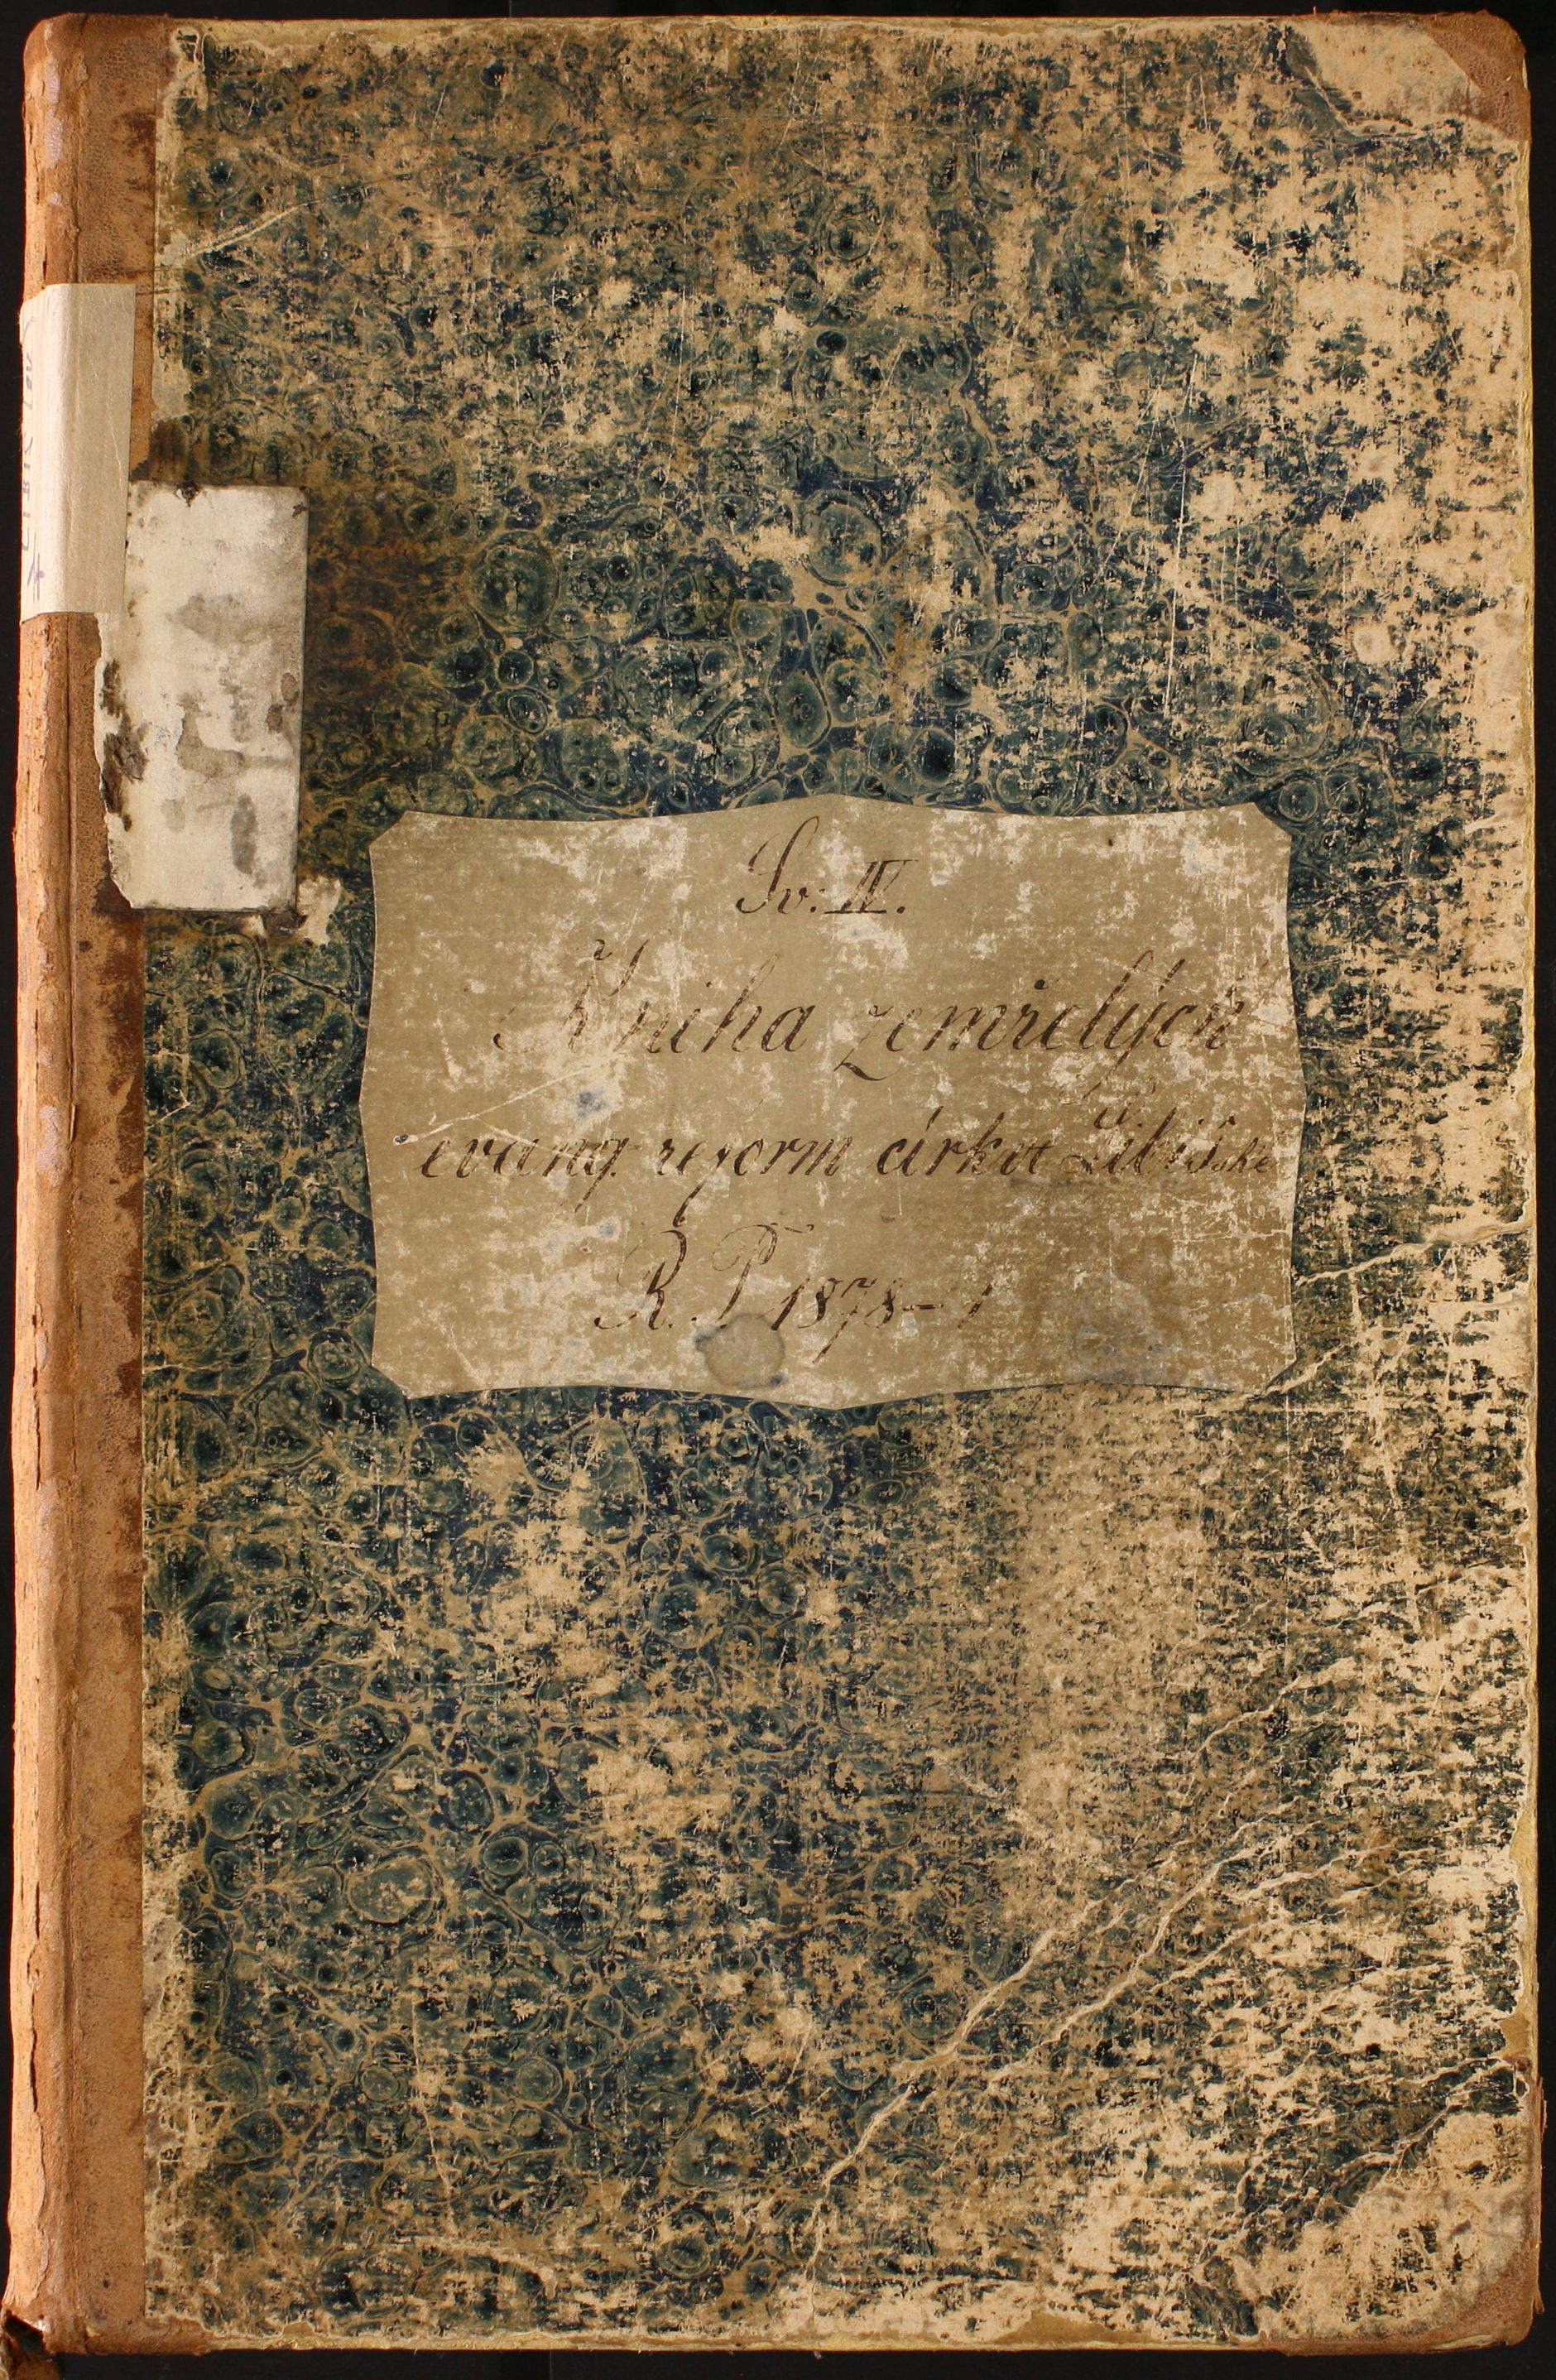 Sv: IV.
Kniha zemřelých
evang. reform církve Libišské
R. P. 1878–